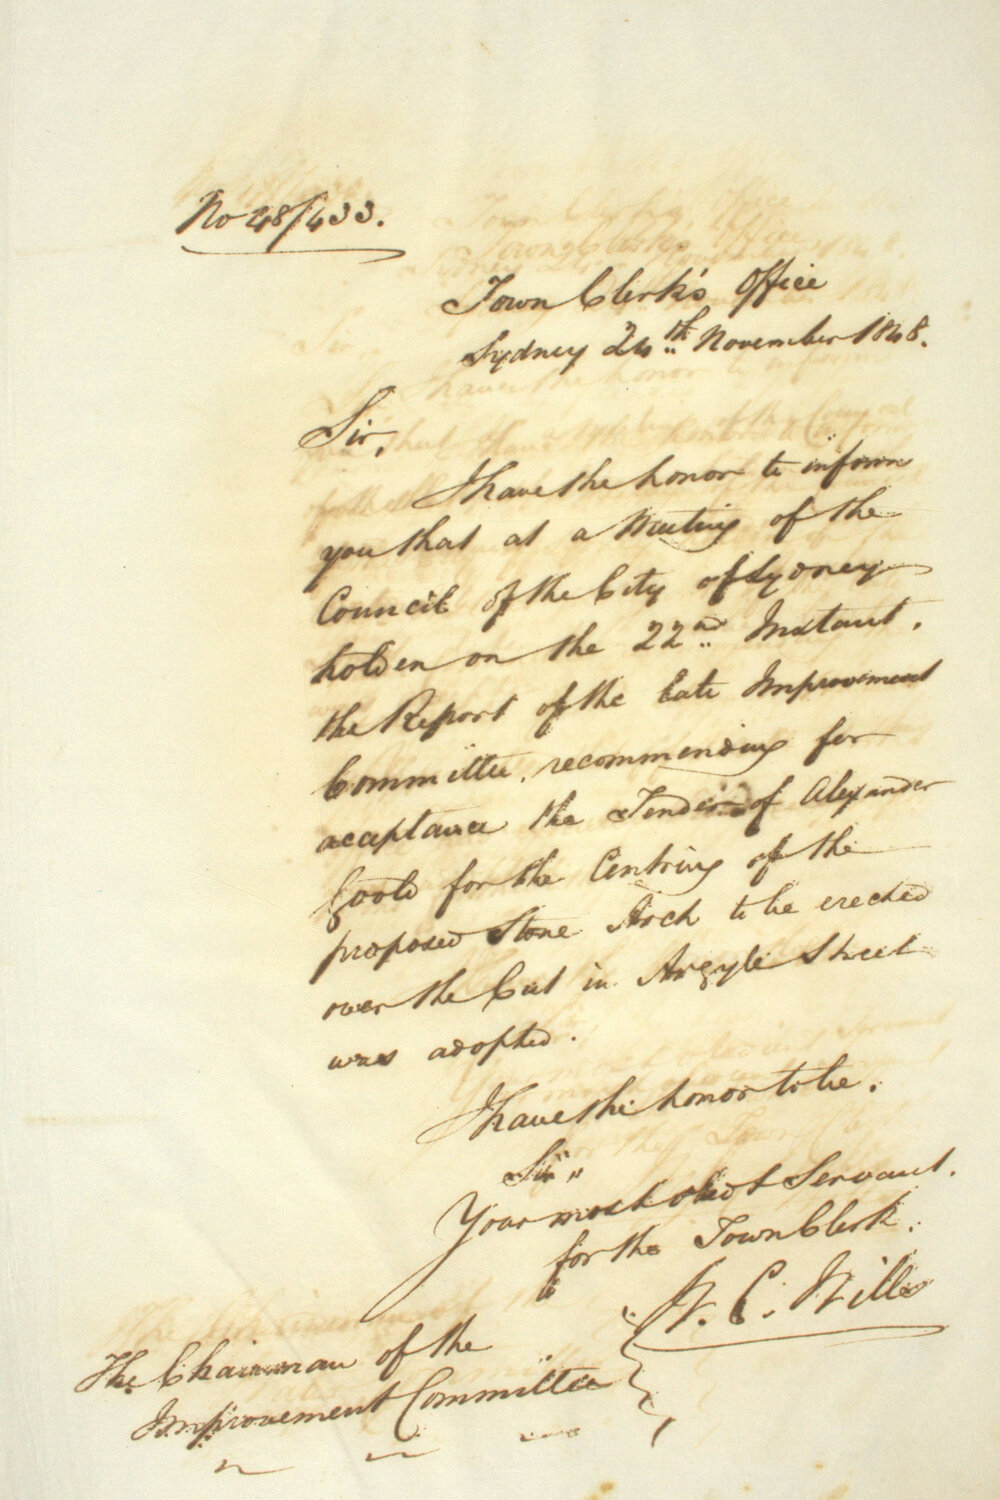 No 48/433.
Town Clerk's Office
Sydney 24th November 1848.
Sir,
I have the honor to inform
you that at a Meeting of the
Council of the City of Sydney
holden on the 22nd Instant,
the Report of the late Improvement
Committee, recommending for
acceptance the Tender of Alexander
for the Centring of the
proposed Stone Arch to be erected
over the Cut in Argyle Street
was adopted.
I have the honor to be,
Sir,,
Your most obedt Servant.
for the Town Clerk.
W. C. Wills
The Chairman of the
Improvement Committee